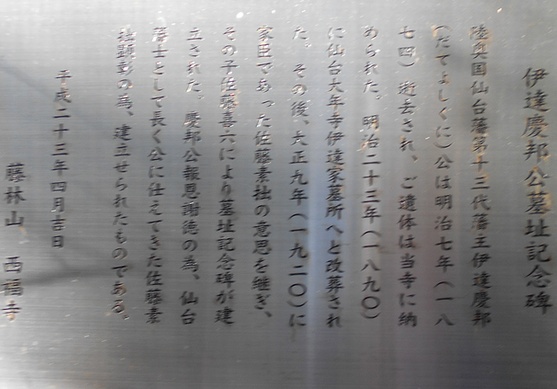 伊達慶邦公墓址記念碑
陸奥国仙台藩第十三代藩主伊達慶邦
(だてよしくに)公は明治七年(一八
七四)逝去され、ご遺体は当寺に納
められた。明治二十三年(一八九〇)
に仙台大年寺伊達家墓所へと改葬され
た。その後、大正九年(一九二〇)に
家臣であった佐藤素拙の意思を継ぎ、
その子佐藤喜六により墓址記念碑が建
立された。慶邦公報恩謝徳の為、仙台
藩士として長く公に仕えてきた佐藤素
拙顕彰の為、建立せられたものである。
平成二十三年四月吉日
藤林山 西福寺